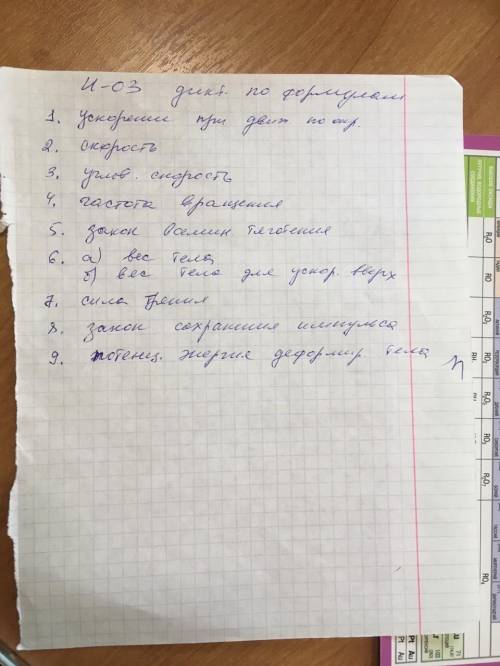 И-03 дикт. по формулам
1. ускорении при движ по окр.
2. скорость
3. углов. скорость
4. частота вращения
5. закон всемин тяготения
6. а) вес тела
б) вес тела для ускор. вверх
7. сила трения
8. закон сохранения импульса
9. потенц. энергия деформир тела
R₂O
RO
R₂O₃
RO₂
RH
R₂O₅
RO₃
R₂O₇
RO₄
Pt
Au
Pt
Au